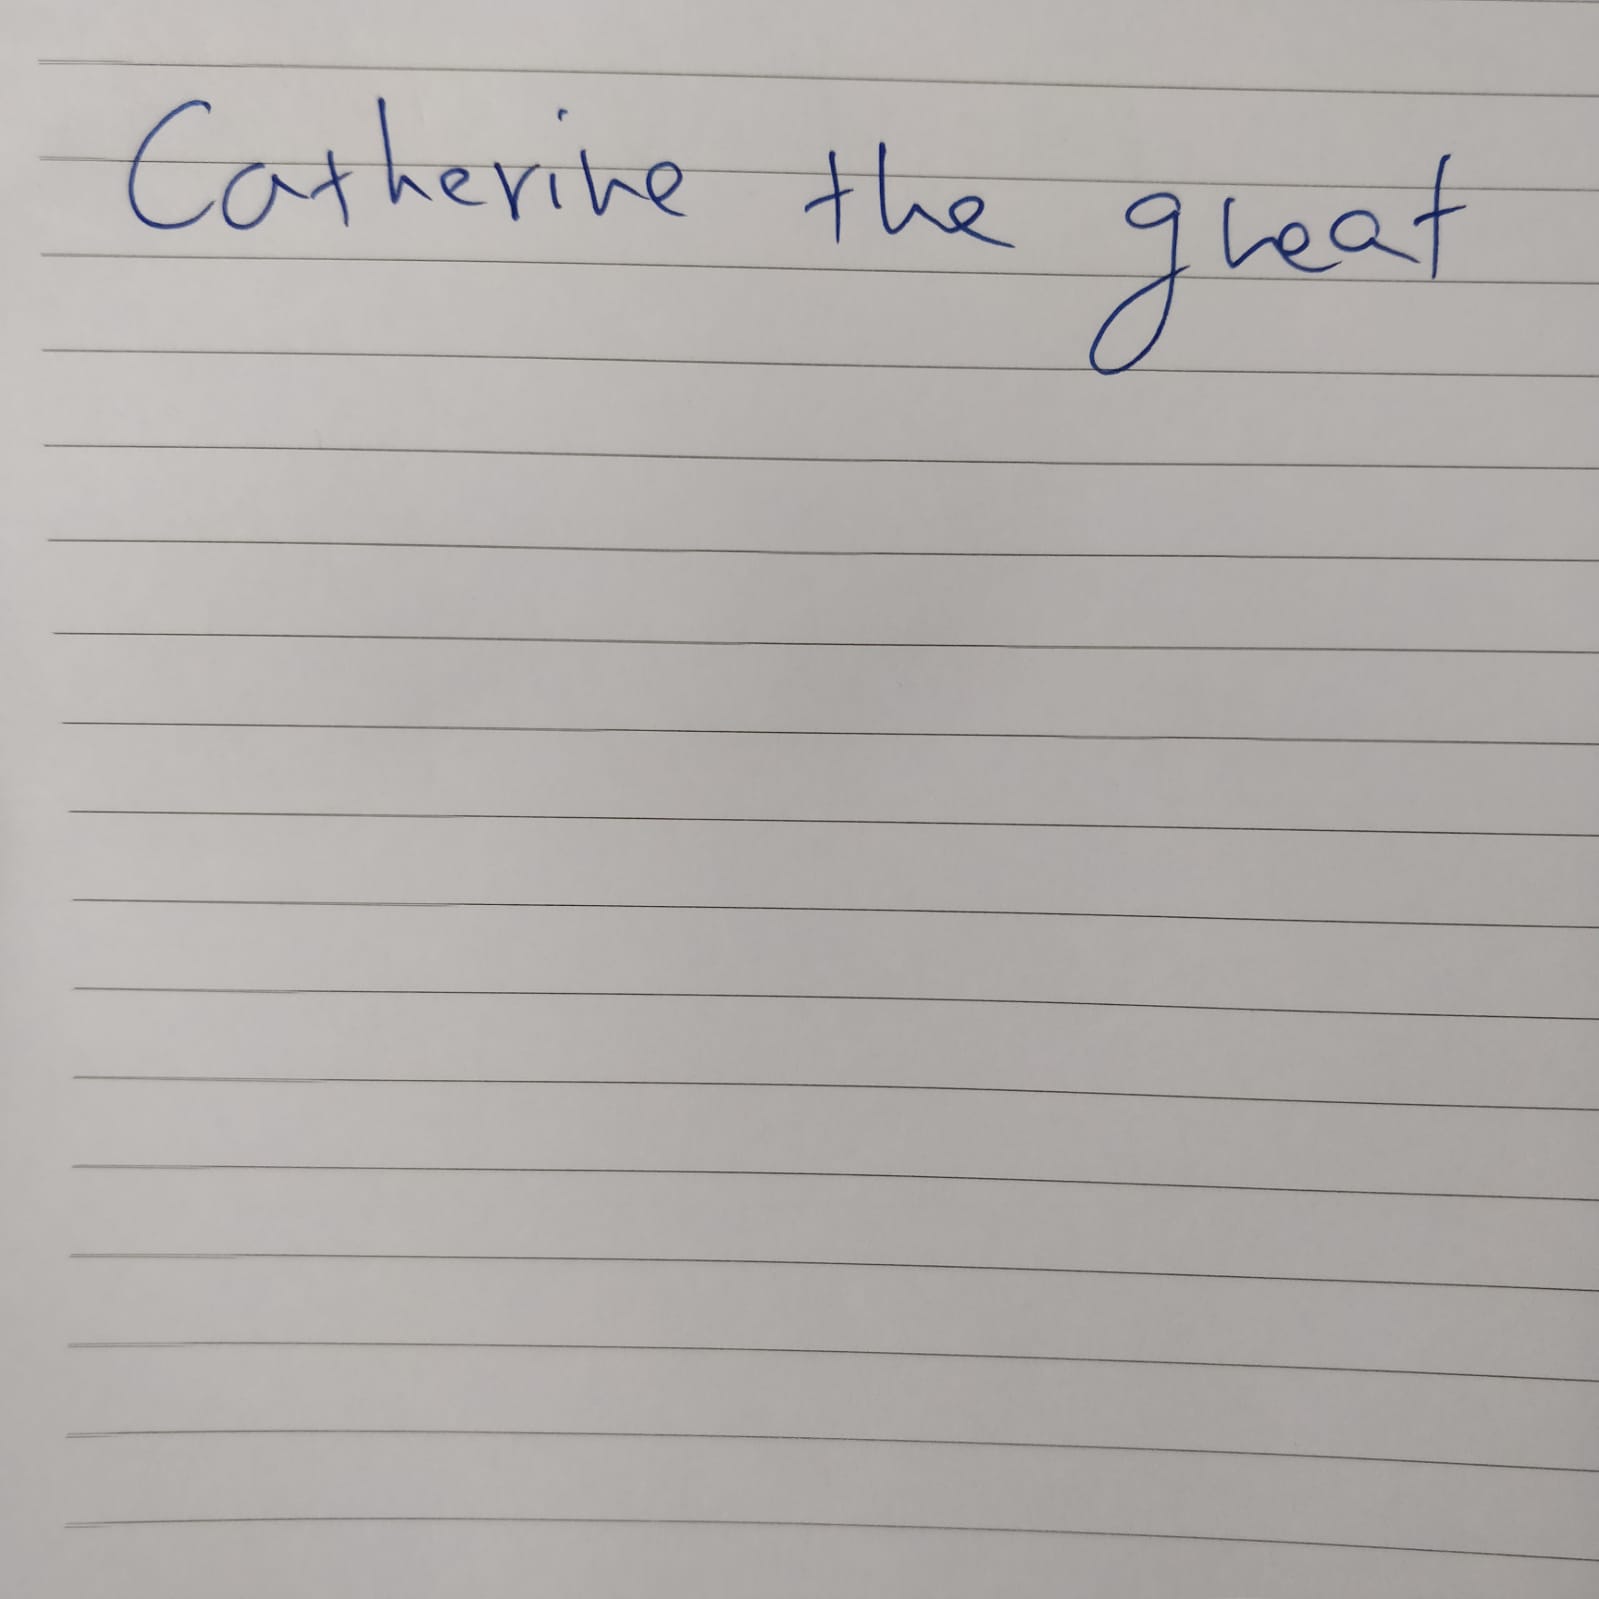 Catherine the great